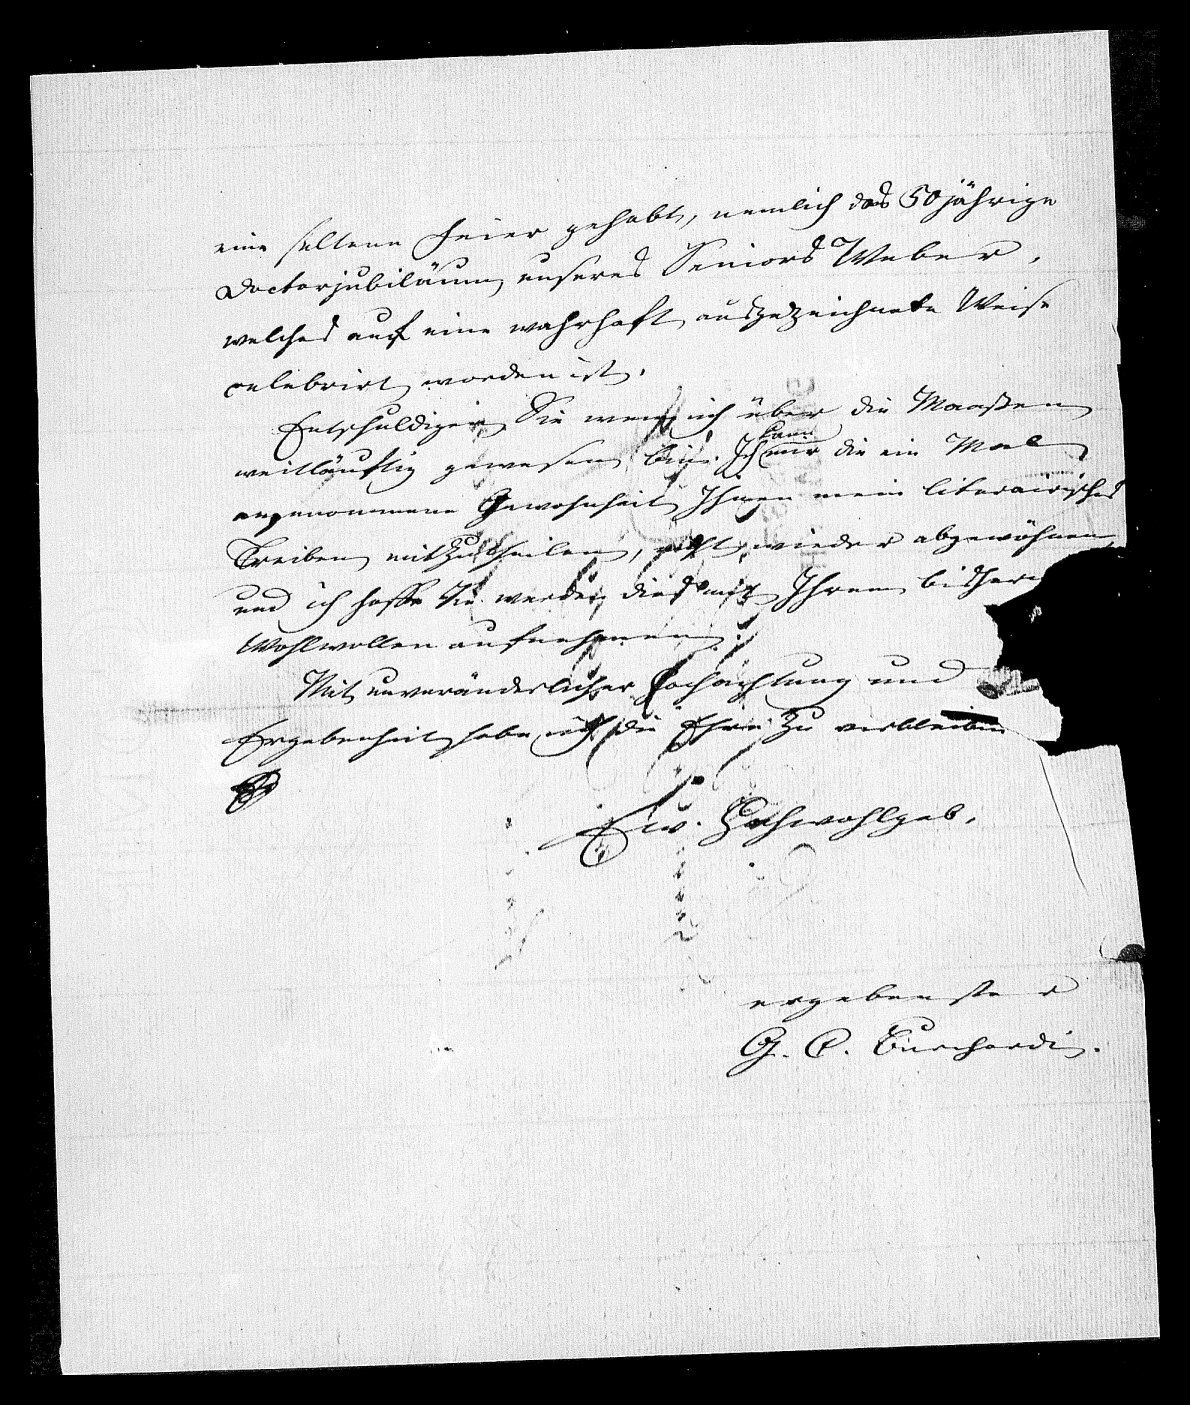 eine seltene Feier gehabt, nemlich das 50jährige
Doctorjubiläum unseres Seniors Weber,
welches auf eine wahrhaft ausgezeichnete Weise
celebrirt worden ist.
Entschuldigen Sie wenn ich über die Maaßen
weitläuftig gewesen bin. Ich kann mir die ein Mal
angenommene Gewohnheit Ihnen mein literairisches
Treiben mitzutheilen, nicht wieder abgewöhnen
und ich hoffe Sie werden dies mit Ihrem bisher
Wohlwollen aufnehmen.
Mit unveränderlicher Hochachtung und
Ergebenheit habe ich die Ehre zu verbleiben
Ew. Hochwohlgeb.
ergebenster
G. C. Burchardi.